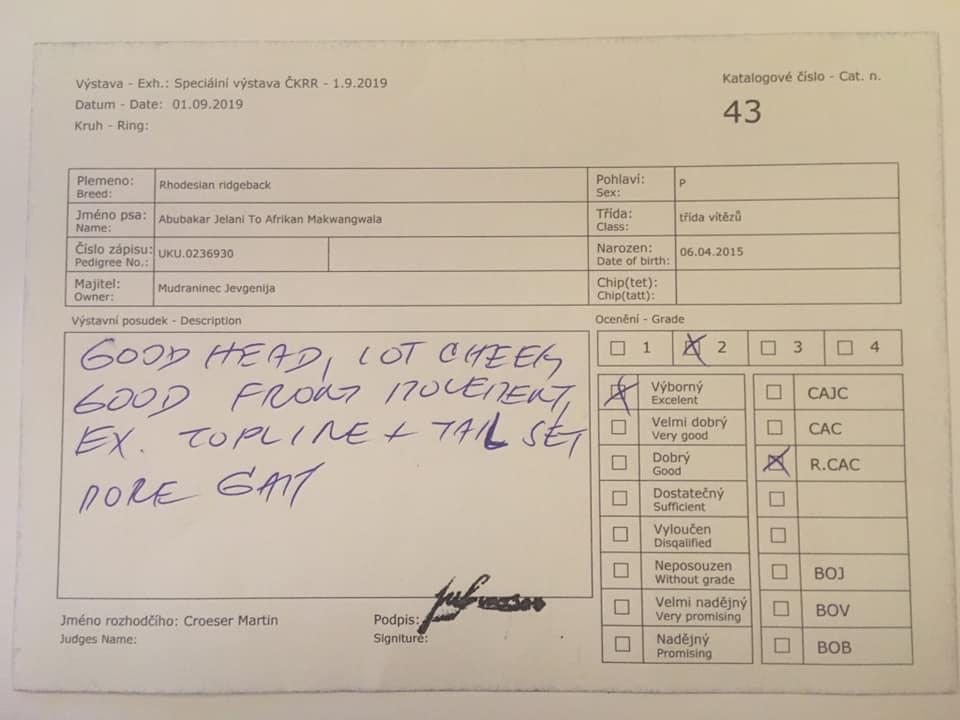 Výstava - Exh.: Speciální výstava ČKRR - 1.9.2019
Datum - Date: 01.09.2019
Kruh - Ring:
Katalogové číslo - Cat. n.
43
Plemeno:
Breed:
Rhodesian ridgeback
Pohlaví:
Sex:
P
Jméno psa:
Name:
Abubakar Jelani To Afrikan Makwangwala
Třída:
Class:
třída vítězů
Číslo zápisu:
Pedigree No.:
UKU.0236930
Narozen:
Date of birth:
06.04.2015
Majitel:
Owner:
Mudraninec Jevgenija
Chip(tet):
Chip(tatt):
Výstavní posudek - Description
GOOD HEAD, LOT CHEEK
GOOD FRONT MOVEMENT,
EX. TOPLINE + TAIL SET
MORE GAIT
Ocenění - Grade
1 2 3 4
Výborný
Excelent
CAJC
Velmi dobrý
Very good
CAC
Dobrý
Good
R.CAC
Dostatečný
Sufficient
Vyloučen
Disqalified
Neposouzen
Without grade
BOJ
Velmi nadějný
Very promising
BOV
Nadějný
Promising
BOB
Jméno rozhodčího: Croeser Martin
Judges Name:
Podpis:
Signiture: